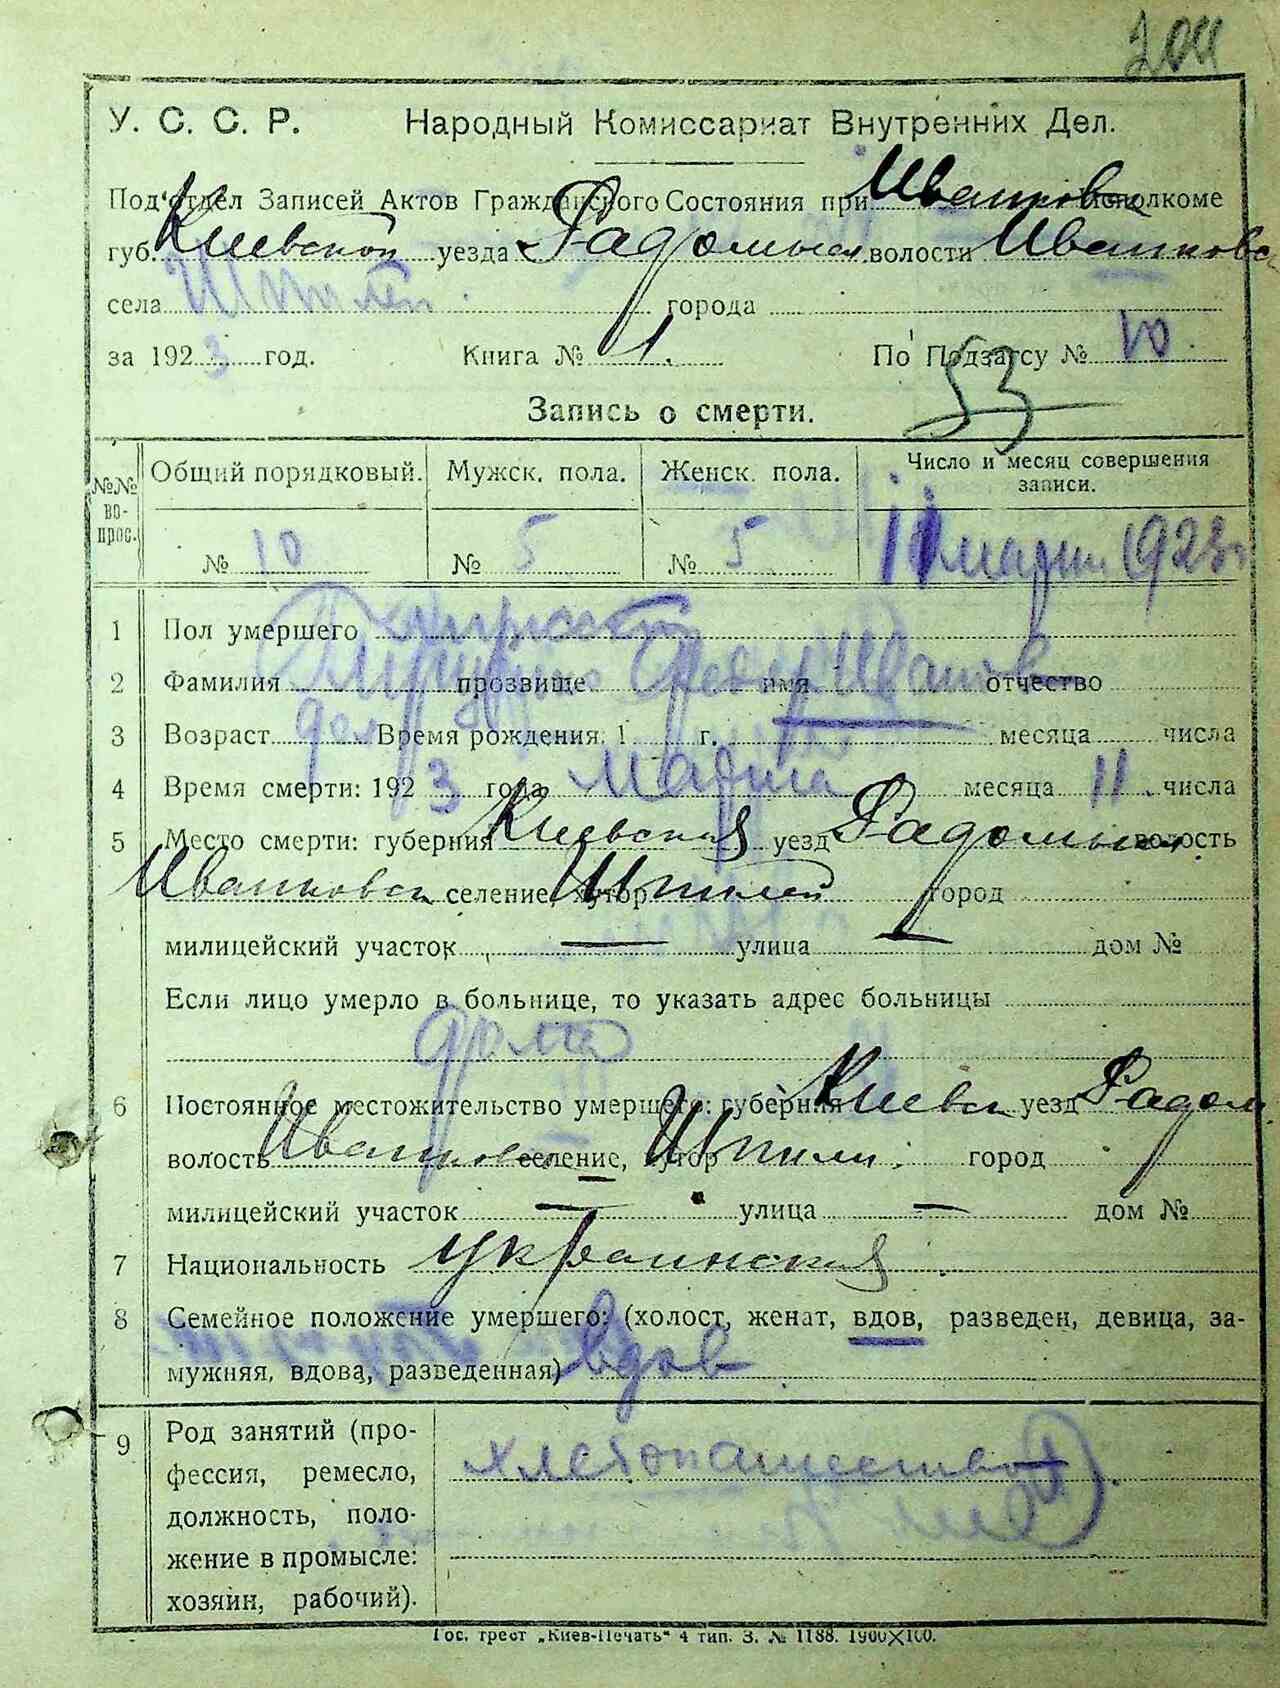 204
У. С. С. Р. Народный Комиссариат Внутренних Дел.
Под'отдел Записей Актов Гражданского Состояния при Иванковск Исполкоме
губ. Киевской уезда Радомысл волости Иванковск
села города
за 1923 год. Книга № 1. По Подзагсу № 10
53
Запись о смерти.
№№ вопрос. Общий порядковый. Мужск. пола. Женск. пола. Число и месяц совершения записи.
№ 10 № 5 № 5 11 марта 1923 г
1 Пол умершего мужской
2 Фамилия прозвище Федор имя Иванов отчество
3 Возраст Время рождения: 1 г. месяца числа
4 Время смерти: 1923 года Марта месяца 11 числа
5 Место смерти: губерния Киевская уезд Радомысл волость
Иванковск селение, хутор Шпилей город
милицейский участок — улица — дом №
Если лицо умерло в больнице, то указать адрес больницы
дома
6 Постоянное местожительство умершего: губерния Киевск уезд Радом
волость Иванков селение, хутор Шпили город
милицейский участок — улица — дом №
7 Национальность украинская
8 Семейное положение умершего: (холост, женат, вдов, разведен, девица, за-
мужняя, вдова, разведенная) вдов
9 Род занятий (про-
фессия, ремесло,
должность, поло-
жение в промысле:
хозяин, рабочий).
хлебопашество
Гос. трест „Киев-Печать" 4 тип. З. № 1188. 1900×100.